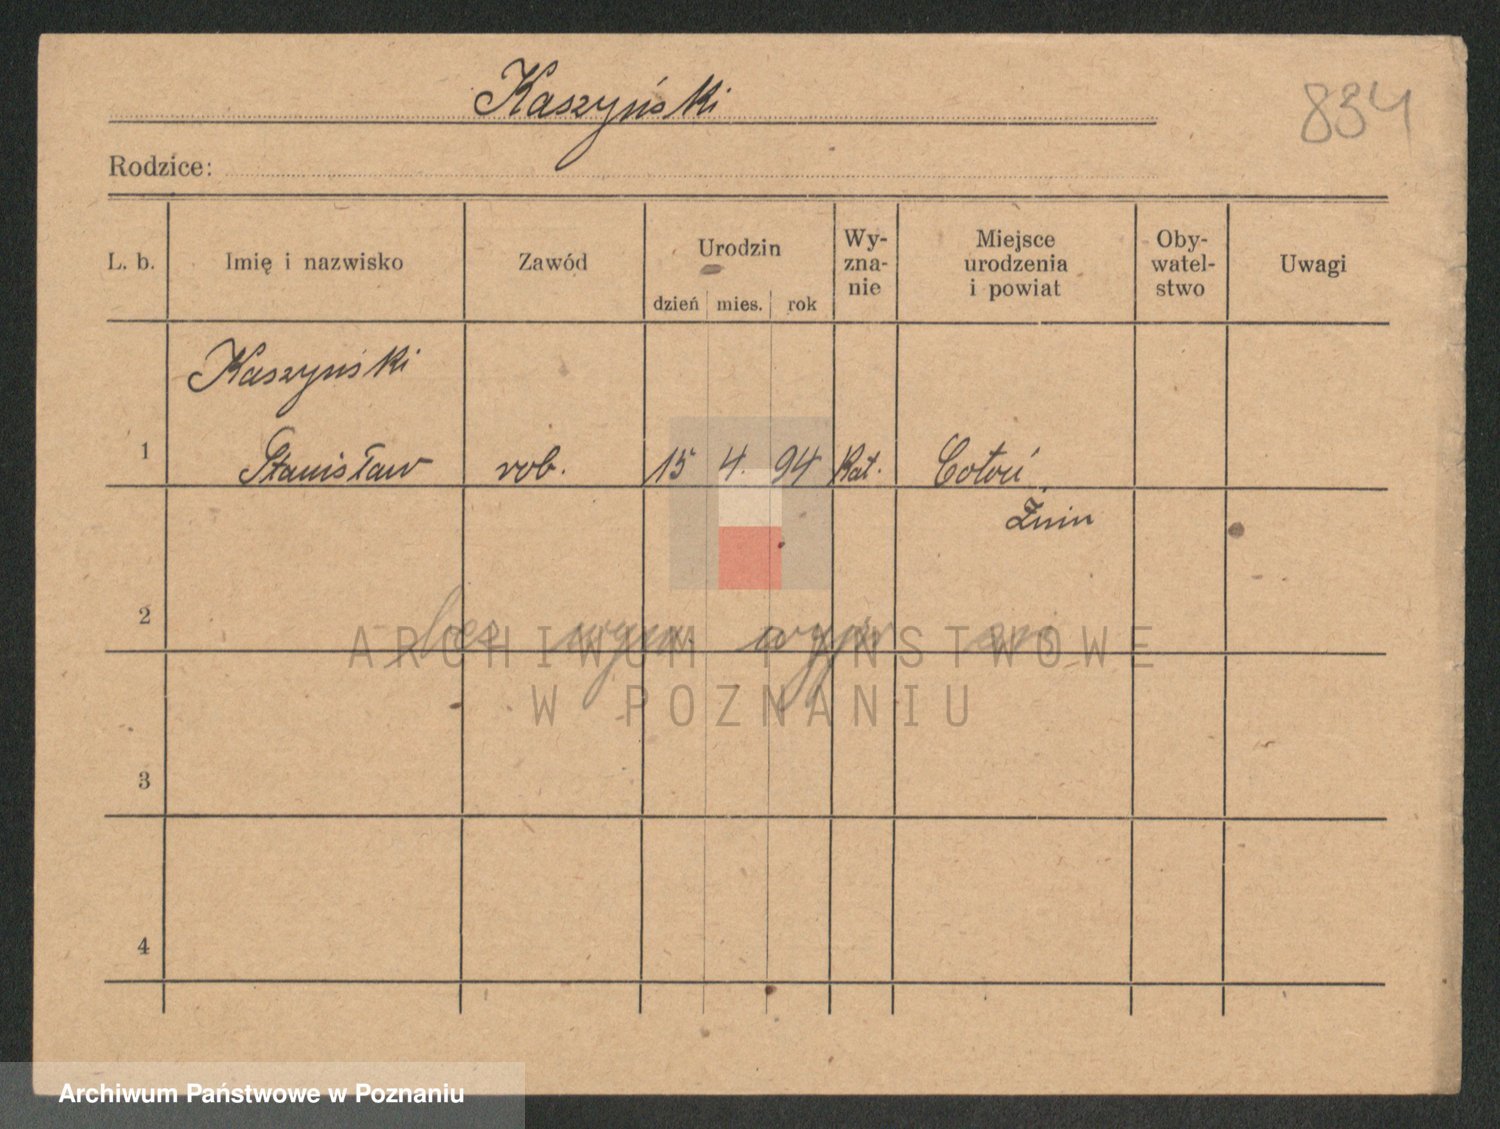 Kaszyński
834
Rodzice:
L. b. Imię i nazwisko Zawód Urodzin dzień mies. rok Wy-zna-nie Miejsce urodzenia i powiat Oby-watel-stwo Uwagi
Kaszyński
1 Stanisław rob. 15 4. 94 Kat. Cotoń
Żnin
2 bez wym.
ARCHIWUM PAŃSTWOWE
W POZNANIU
3
4
Archiwum Państwowe w Poznaniu